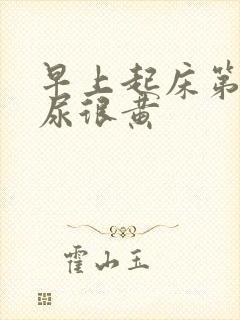 早上起床第
尿很黄
霍山玉